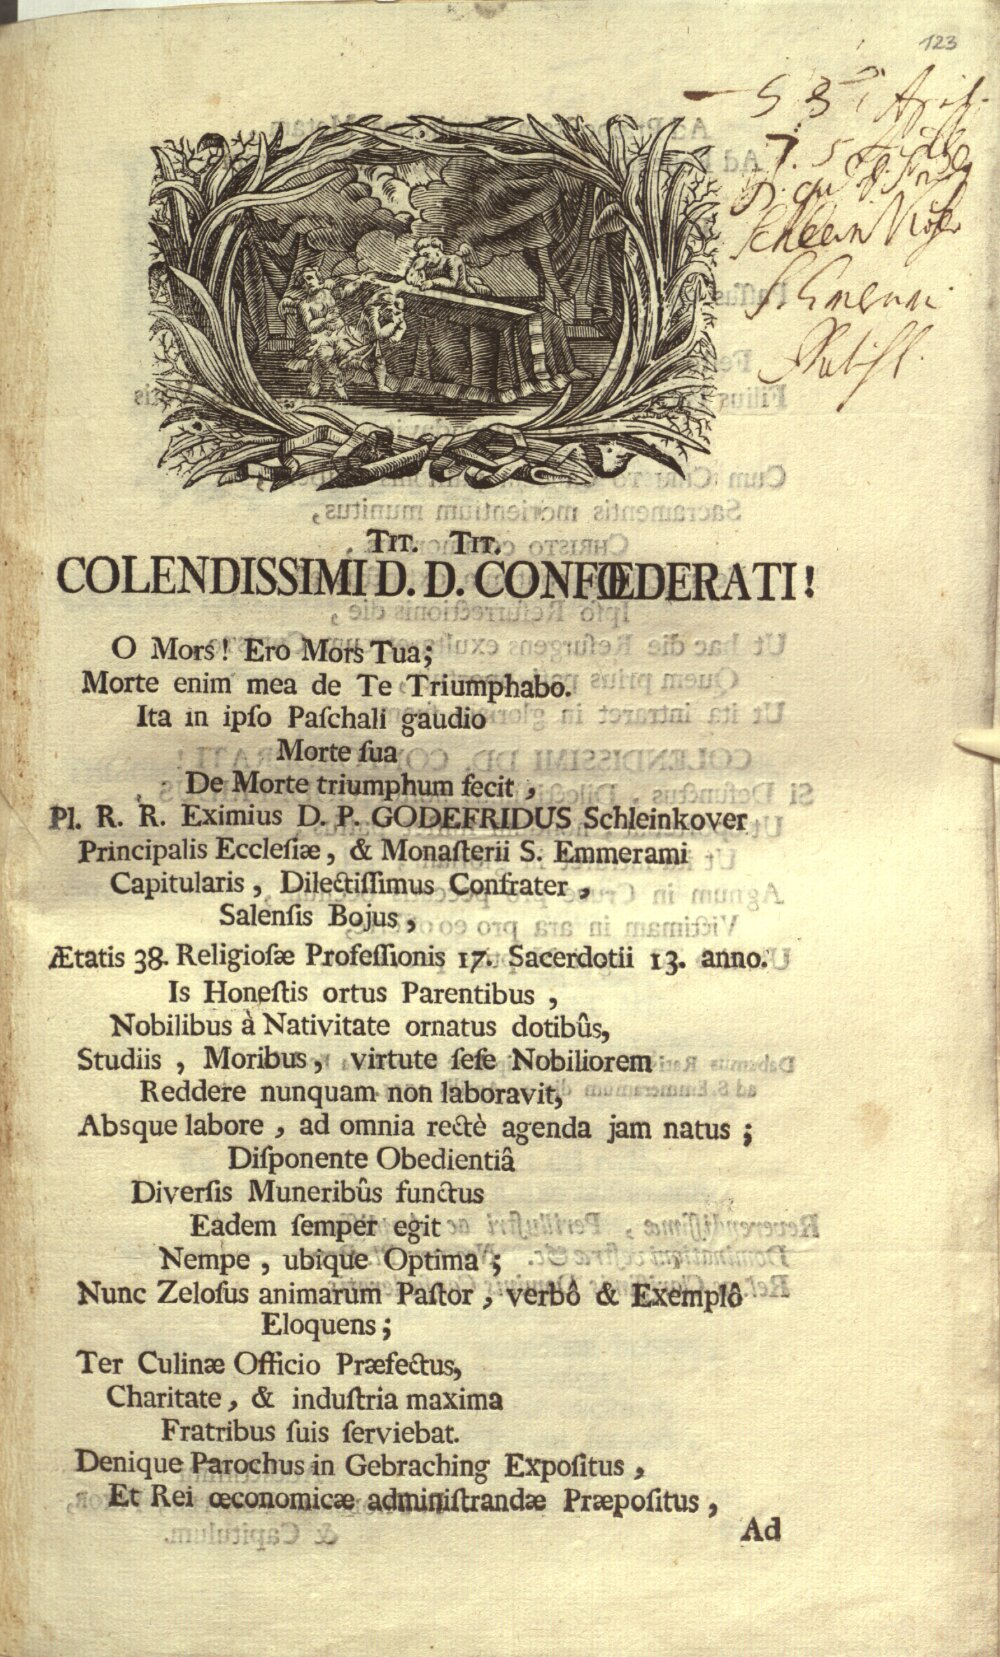 123
TIT. TIT.
COLENDISSIMI D. D. CONFŒDERATI!
O Mors! Ero Mors Tua;
Morte enim mea de Te Triumphabo.
Ita in ipſo Paſchali gaudio
Morte ſua
De Morte triumphum fecit,
Pl. R. R. Eximius D. P. GODEFRIDUS Schleinkover
Principalis Eccleſiæ, & Monaſterii S. Emmerami
Capitularis, Dilectiſſimus Confrater,
Salenſis Bojus,
Ætatis 38. Religioſæ Profeſſionis 17. Sacerdotii 13. anno.
Is Honeſtis ortus Parentibus,
Nobilibus à Nativitate ornatus dotibûs,
Studiis, Moribus, virtute ſeſe Nobiliorem
Reddere nunquam non laboravit,
Absque labore, ad omnia rectè agenda jam natus;
Diſponente Obedientiâ
Diverſis Muneribûs functus
Eadem ſemper egit
Nempe, ubique Optima;
Nunc Zeloſus animarum Paſtor, verbô & Exemplô
Eloquens;
Ter Culinæ Officio Præfectus,
Charitate, & induſtria maxima
Fratribus ſuis ſerviebat.
Denique Parochus in Gebraching Expoſitus,
Et Rei œconomicæ adminiſtrandæ Præpoſitus,
Ad